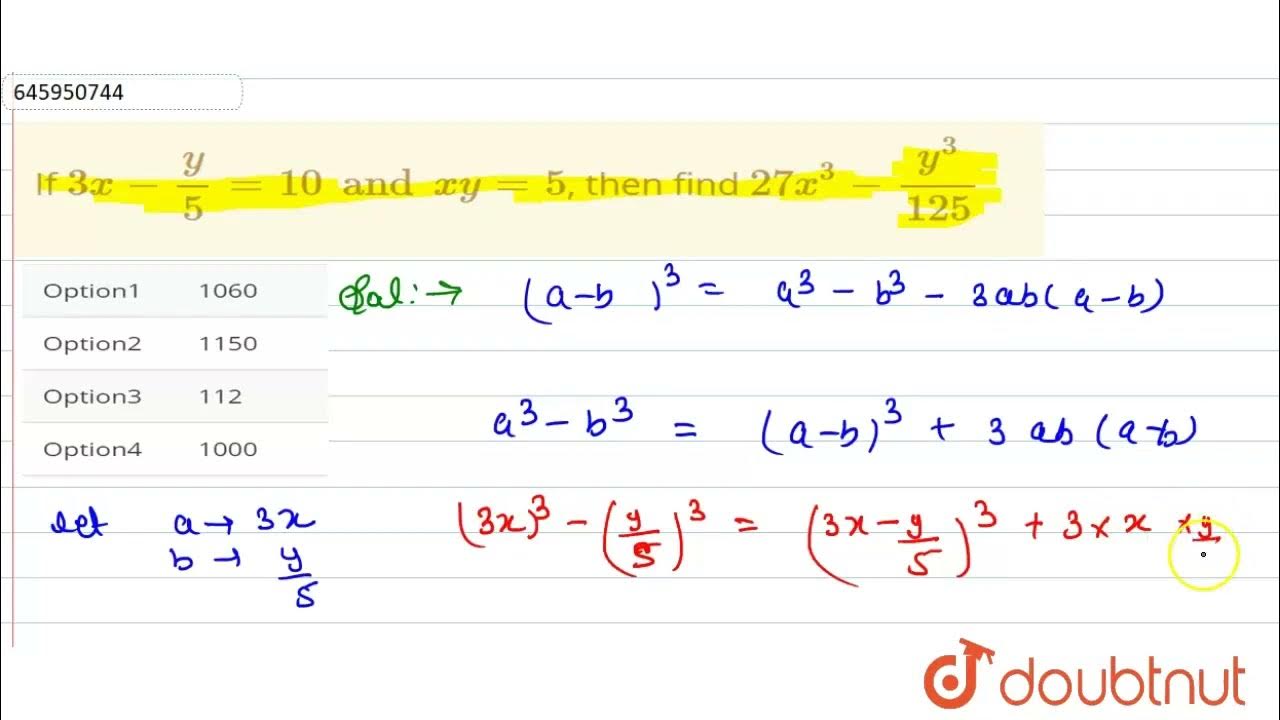 645950744
If 3x − y/5 = 10 and xy = 5, then find 27x³ − y³/125
Option1 1060
Option2 1150
Option3 112
Option4 1000
Sol:→ (a-b)³ = a³ - b³ - 3ab(a-b)
a³ - b³ = (a-b)³ + 3ab(a-b)
let a → 3x
b → y/5
(3x)³ - (y/5)³ = (3x - y/5)³ + 3 × x × y
doubtnut